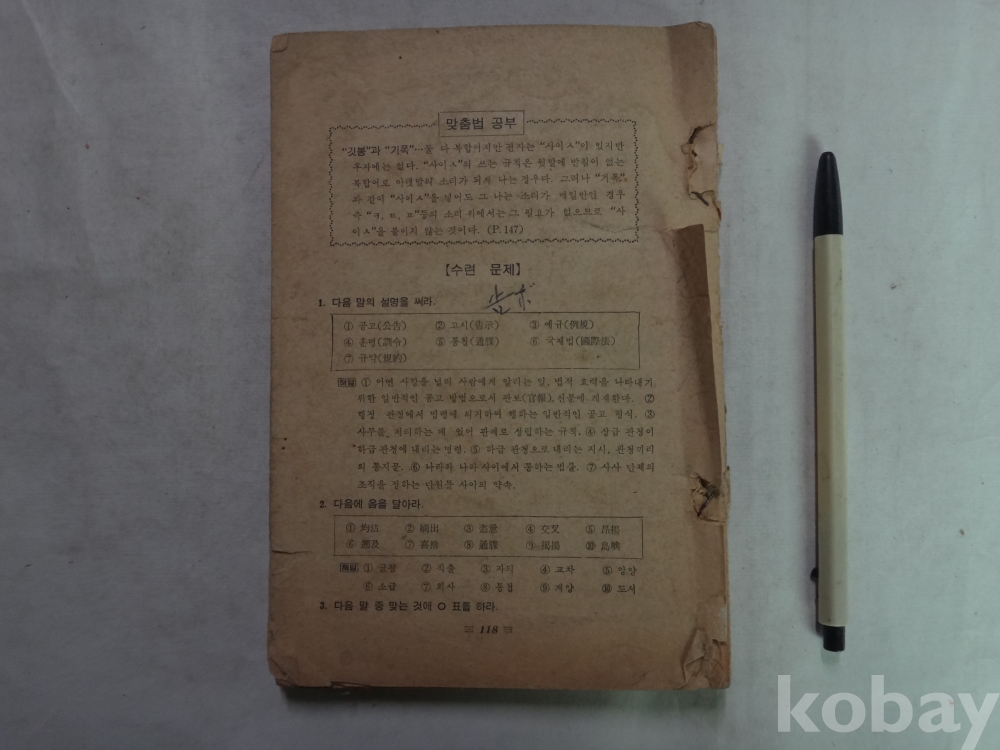 맞춤법 공부
"깃봉"과 "기폭"…둘 다 복합어지만 전자는 "사이ㅅ"이 있지만
후자에는 없다. "사이ㅅ"의 쓰는 규칙은 윗말에 받침이 없는
복합어로 아랫말의 소리가 되게 나는 경우다. 그러나 "기폭"
과 같이 "사이ㅅ"을 넣어도 그 나는 소리가 매일반인 경우
즉 "ㅋ, ㅌ, ㅍ"등의 소리 위에서는 그 필요가 없으므로 "사
이ㅅ"을 붙이지 않는 것이다. (P. 147)
【수련 문제】
1. 다음 말의 설명을 써라.
① 공고(公告) ② 고시(告示) ③ 예규(例規)
④ 훈령(訓令) ⑤ 통첩(通牒) ⑥ 국제법(國際法)
⑦ 규약(規約)
① 어떤 사실을 널리 사람에게 알리는 일, 법적 효력을 나타내기
위한 일반적인 공고 방법으로서 관보(官報), 신문에 게재한다. ②
행정 관청에서 법령에 의거하여 행하는 일반적인 공고 형식. ③
사무를 처리하는 데 있어 관례로 성립하는 규칙. ④ 상급 관청이
하급 관청에 내리는 명령. ⑤ 하급 관청으로 내리는 지시, 관청끼리
의 통지문. ⑥ 나라와 나라 사이에서 통하는 법률. ⑦ 사사 단체의
조직을 정하는 단원들 사이의 약속.
2. 다음에 음을 달아라.
① ② 摘出 ③ 恣意 ④ 交叉 ⑤ 昂揚
⑥ 遡及 ⑦ 喜捨 ⑧ 通牒 ⑨ 揭揚 ⑩ 島嶼
① ② 적출 ③ 자의 ④ 교차 ⑤ 앙양
⑥ 소급 ⑦ 희사 ⑧ 통첩 ⑨ 게양 ⑩ 도서
3. 다음 말 중 맞는 것에 ○ 표를 하라.
118
kobay